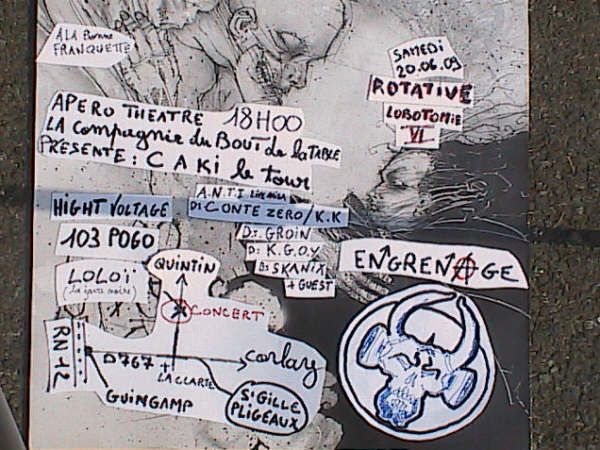 À LA Bonne
FRANQUETTE
SAMEDI
20.06.09
ROTATIVE
LOBOTOMIE
VI
APERO THEATRE 18H00
LA Compagnie du BOUT de la TABLE
PRÉSENTE : CAKI le tour
HIGHT VOLTAGE
A.N.T.I
DJ CONTE ZERO/K.K
103 POGO
DJ GROIN
DJ K.G.O.Y
DJ SKANIX
+ GUEST
ENGRENAGE
LOLOÏ
QUINTIN
CONCERT
RN 12
D767
LA CLARTE
corlay
GUINGAMP
St GILLE
PLIGEAUX